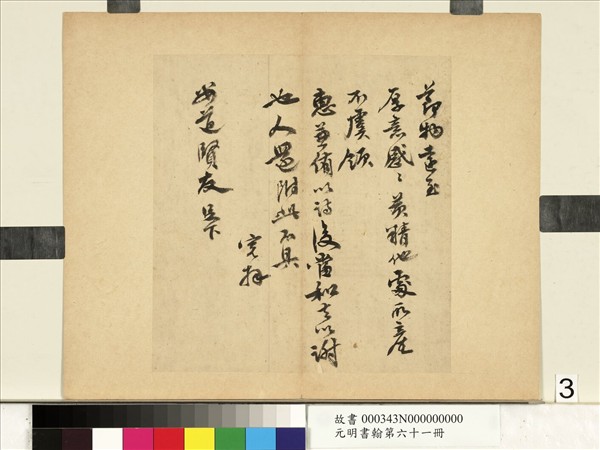 節物遠至
厚意感〻黃精他處所產
不虞領
惠兼侑以詩後當和去以謝
也人還附此不具
寬拜
道賢友足下
3
故書 000343N000000000
元明書翰第六十一冊